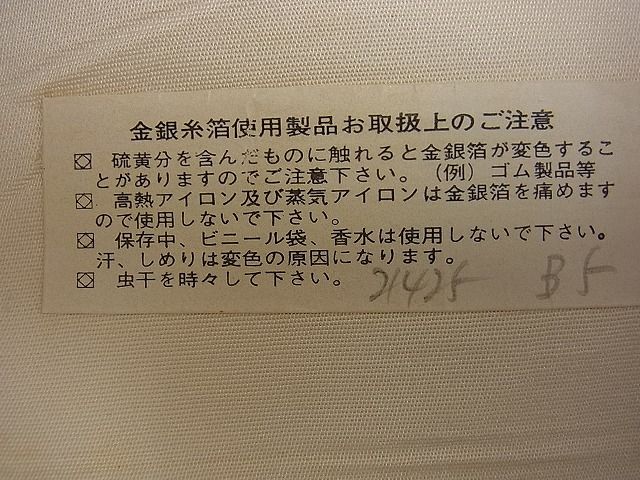 金銀糸箔使用製品お取扱上のご注意
硫黄分を含んだものに触れると金銀箔が変色するこ
とがありますのでご注意下さい。（例）ゴム製品等
高熱アイロン及び蒸気アイロンは金銀箔を痛めます
ので使用しないで下さい。
保存中、ビニール袋、香水は使用しないで下さい。
汗、しめりは変色の原因になります。
虫干を時々して下さい。
21425 B5